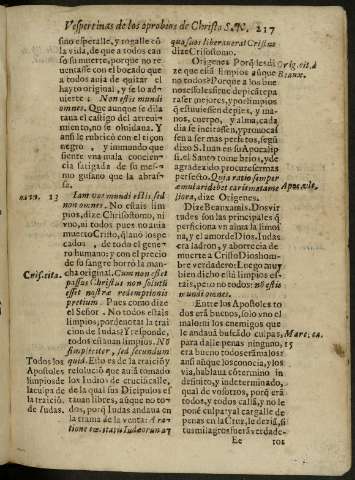 Vespertinas de los oprobios de Christo S.N. 217
sino esperalle, y rogalle cõ
la vida, de que a todos cau
so su muerte, porque no re
uentasse con el bocado que
a todos auia de quitar el
hayto original, y se lo ad-
uierte: Non estis mundi
omnes. Que aunque se dila
taua el castigo del atreui-
miento, no se oluidaua. Y
ansi le rubricò con el tigon
negro, y immundo que
siente vna mala concien-
cia fatigada de su mes-
mo gusano que la abras-
sa.
13 Iam vos mundi estis sed
non omnes. No estais lim-
pios, dize Chrisostomo, ni
vno, ni todos pues no auia
muerto Cristo, quãdo los pe
cados, de todo el gene-
ro humano; y con el precio
de su sangre borrò la man-
Crisost.
cha original. Cum non esset
passus Christus non soluti
esset nostræ redemptionis
pretium. Pues como dize
el Señor. No todos estais
limpios, porq̃ enotar la trai
cion de Iudas? Y responde,
todos estauan limpios. No
simpliciter, sed secundum
Todos los
Apostoles
limpios de
la culpa de
la traiciõ
de Iudas.
quid. Esto es de la traiciõ y
resoluciõ que auiã tomado
los Iudios de crucificalle,
de la qual sus Dicipulos es
tauan libres, aunque no to-
dos, porq̃ Iudas andaua en
la trama de la venta: A ra-
tione
quasuos liberauerat Cristus
dize Crisostomo.
Origenes Porq̃ les di
Orig. cit. à
Beaux.
ze que està limpios aũque
no todos? Porque los bue
nos essoles tiene depicãte pa
ra ser mejores, y por limpios
q̃ estuuiessen de pies, y ma-
nos, cuerpo, y alma, cada
dia se incitassen, y prouocas
sen a ser mas perfetos, segũ
dixo S. Iuan en su Apocalip
si. el Santo tome brios, y de
agradezido procure ser mas
perfecto. Quia ratio semper
Apocalt.
liora, dize Origenes.
Dize Beauxamis. Dos vir
tudes son las principales q̃
perficiona vn anima la limos
na, y el amor de Dios. Iudas
era ladron, y aborrecia de
muerte a Cristo Dios hom-
bre verdadero: Luego muy
bien dicho està limpios es-
tais, pero no todos: nõ estis
mundi omnes.
Entre los Apostoles to
dos erã buenos, solo vno el
malo entre los enemigos que
le andauã buscãdo culpas,
Marc. ca.
15
para dalle penas ninguno,
era bueno todos erã malos:
ansi aũque los conocia, y los
via, hablaua cõ termino in
definito, y indeterminado,
qual de vosotros, porq̃ erã
todos, y todos callã, y no le
ponẽ culpa: y al cargalle de
penas en la Cruz, le dezia, si
tus milagros fuerã verdade-
Ee ros